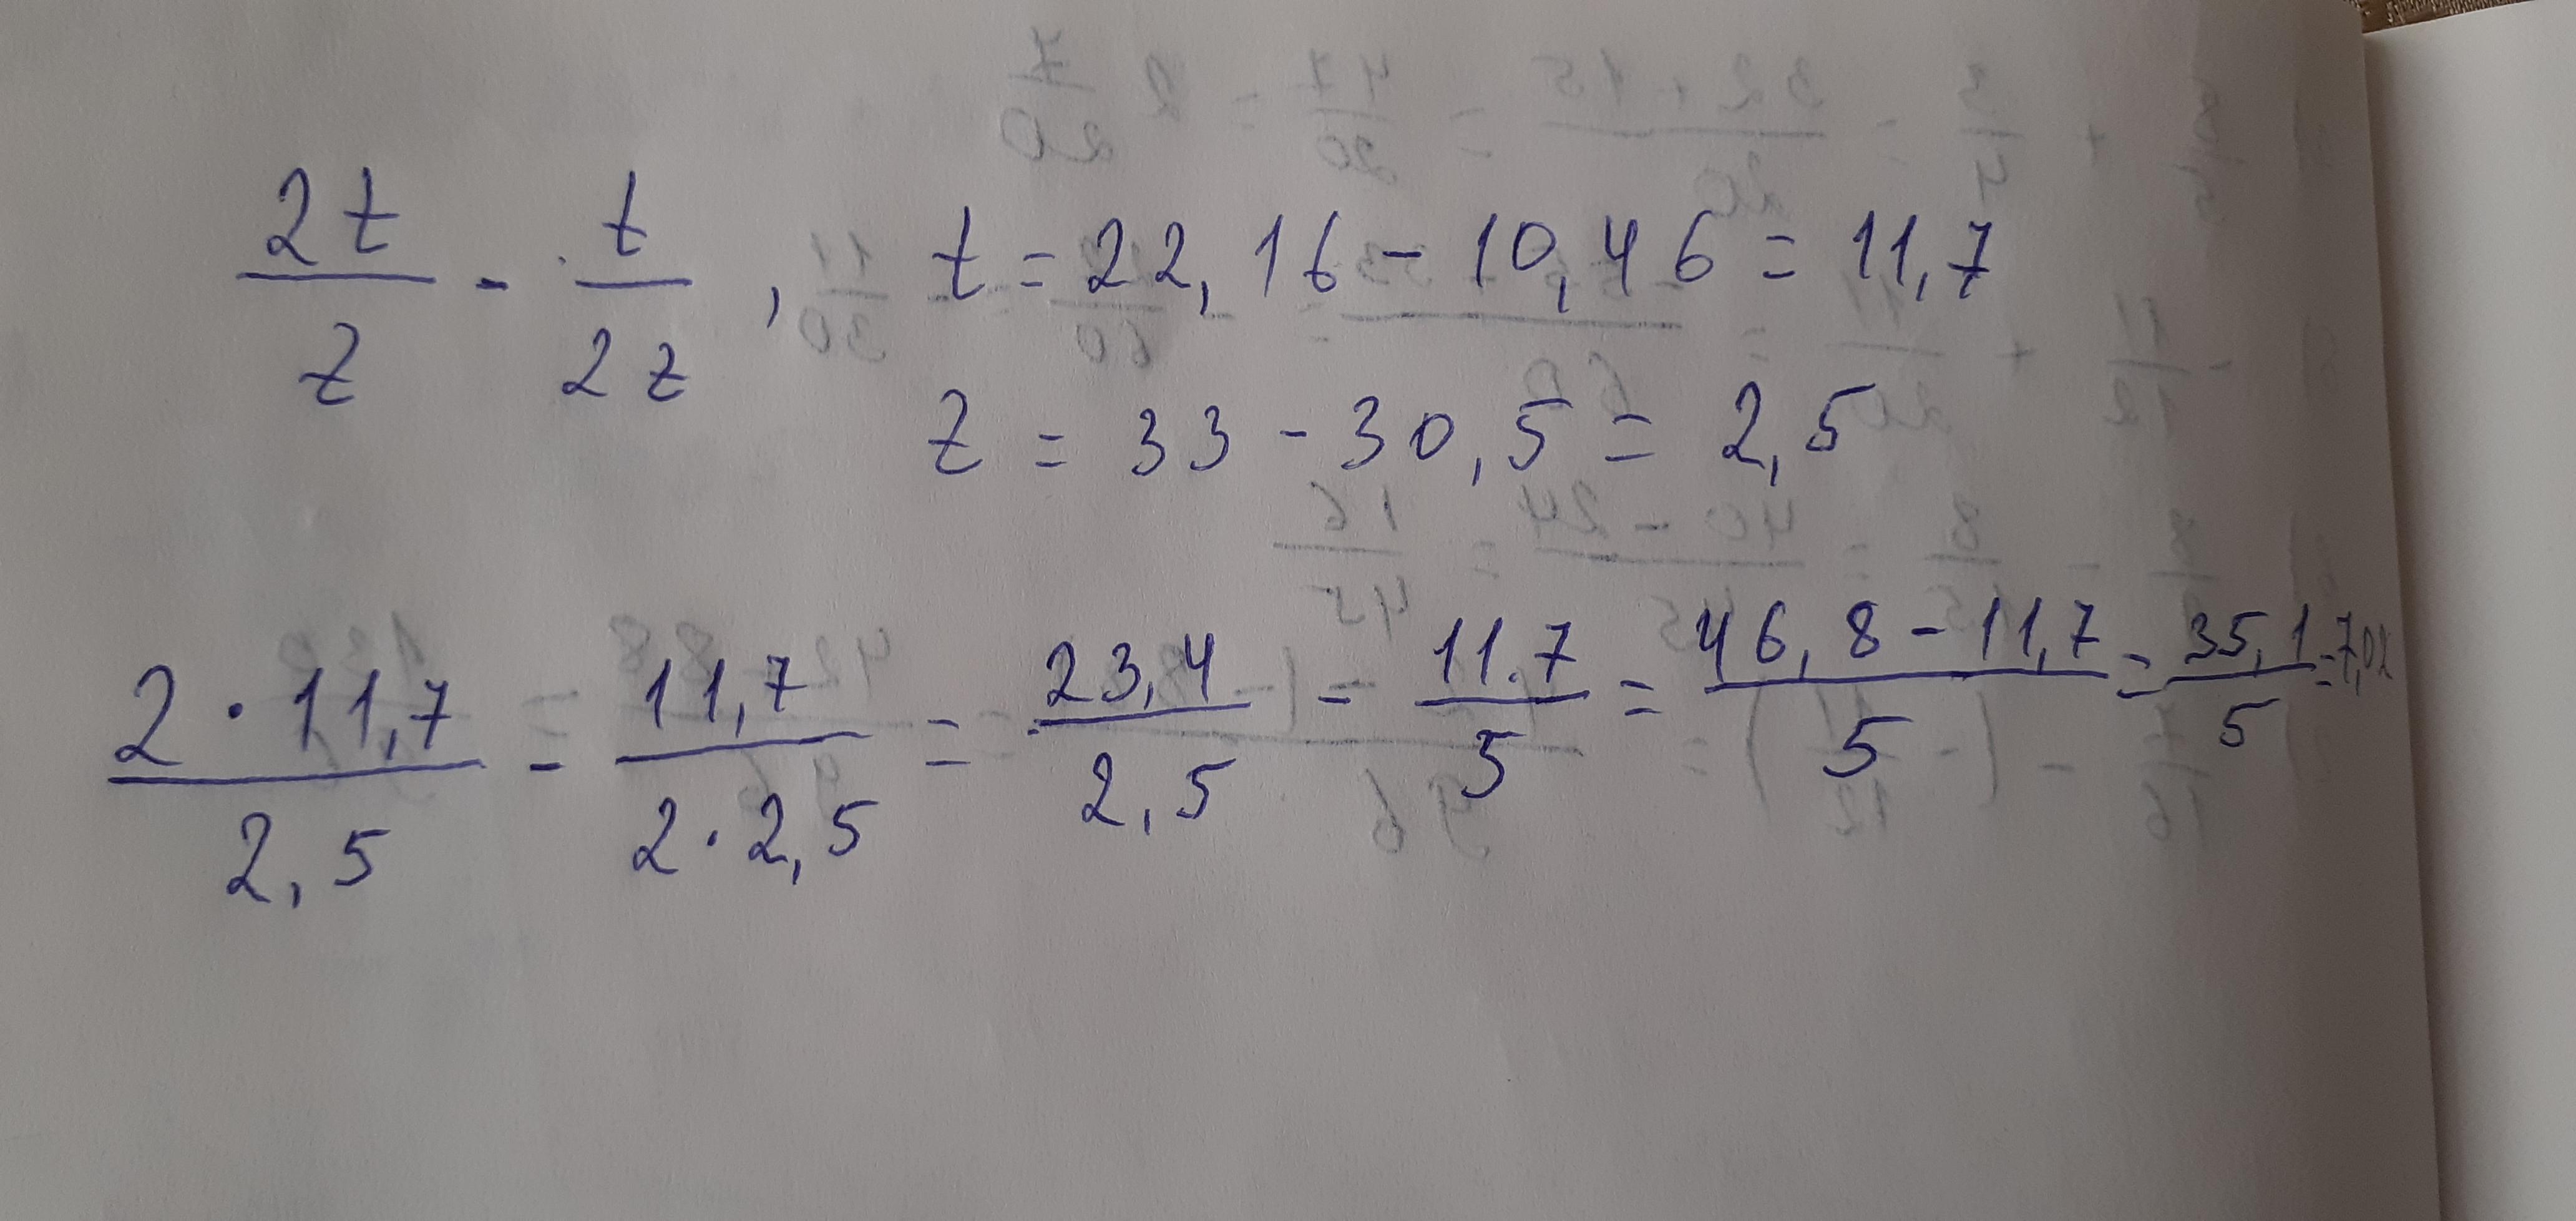 2t/z - t/2z, t = 22,16 - 10,46 = 11,7
z = 33 - 30,5 = 2,5
2·11,7/2,5 - 11,7/2·2,5 = 23,4/2,5 - 11.7/5 = 46,8 - 11,7/5 = 35,1/5 = 7,02